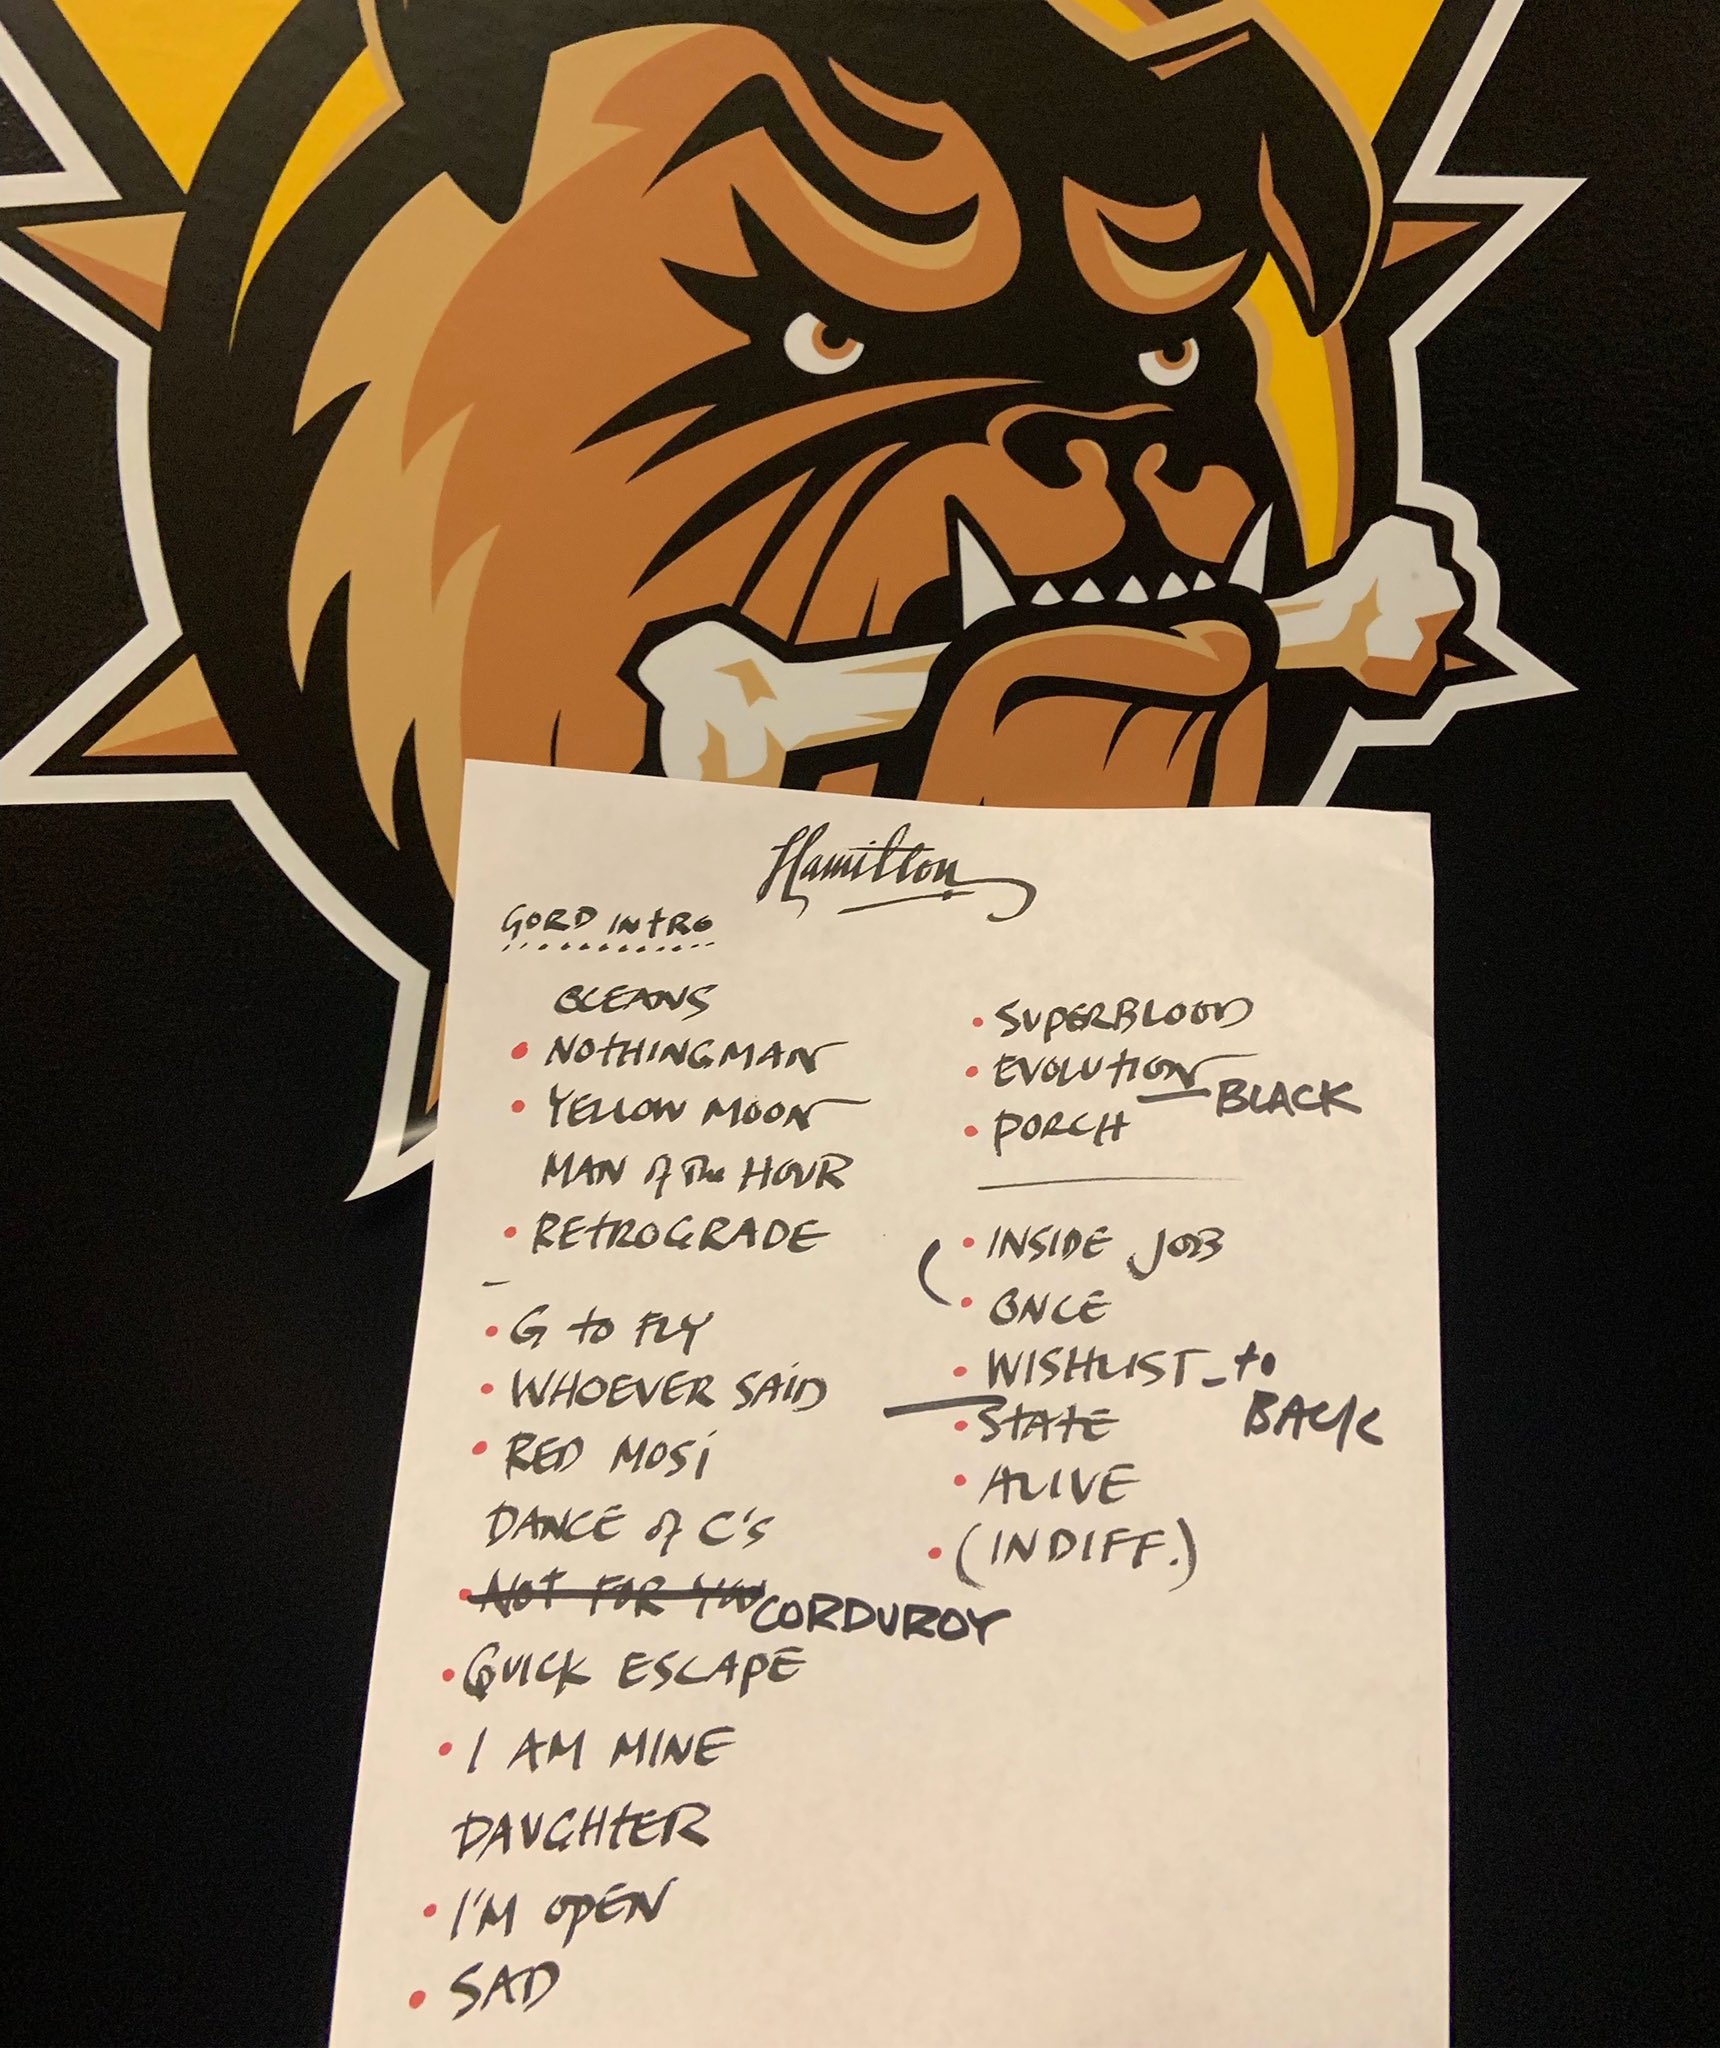 Hamilton
GORD INTRO
OCEANS
• NOTHINGMAN
• YELLOW MOON
MAN of the HOUR
• RETROGRADE
–
• G to FLY
• WHOEVER SAID
• RED MOSi
DANCE of C's
• NOT FOR YOU CORDUROY
• QUICK ESCAPE
• I AM MINE
DAUGHTER
• I'M OPEN
• SAD
• SUPERBLOOD
• EVOLUTION BLACK
• PORCH
• INSIDE JOB
• ONCE
• WISHLIST – to
BACK
• STATE
• ALIVE
• (INDIFF.)